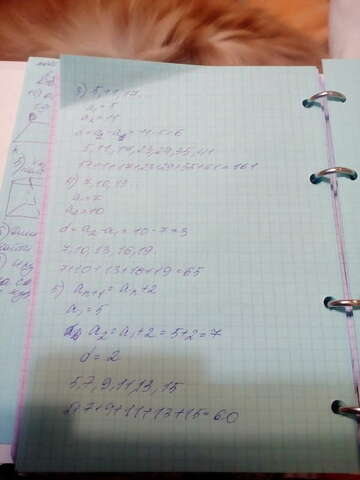 3) 5, 11, 17.
a₁ = 5
a₂ = 11
d = a₂ - a₁ = 11 - 5 = 6
5, 11, 17, 23, 29, 35, 41
5+11+17+23+29+35+41 = 161
4) 7, 10, 13.
a₁ = 7
a₂ = 10
d = a₂ - a₁ = 10 - 7 = 3
7, 10, 13, 16, 19.
7+10+13+16+19 = 65
5) aₙ₊₁ = aₙ + 2
a₁ = 5
a₂ = a₁ + 2 = 5 + 2 = 7
d = 2
5, 7, 9, 11, 13, 15
5+7+9+11+13+15 = 60